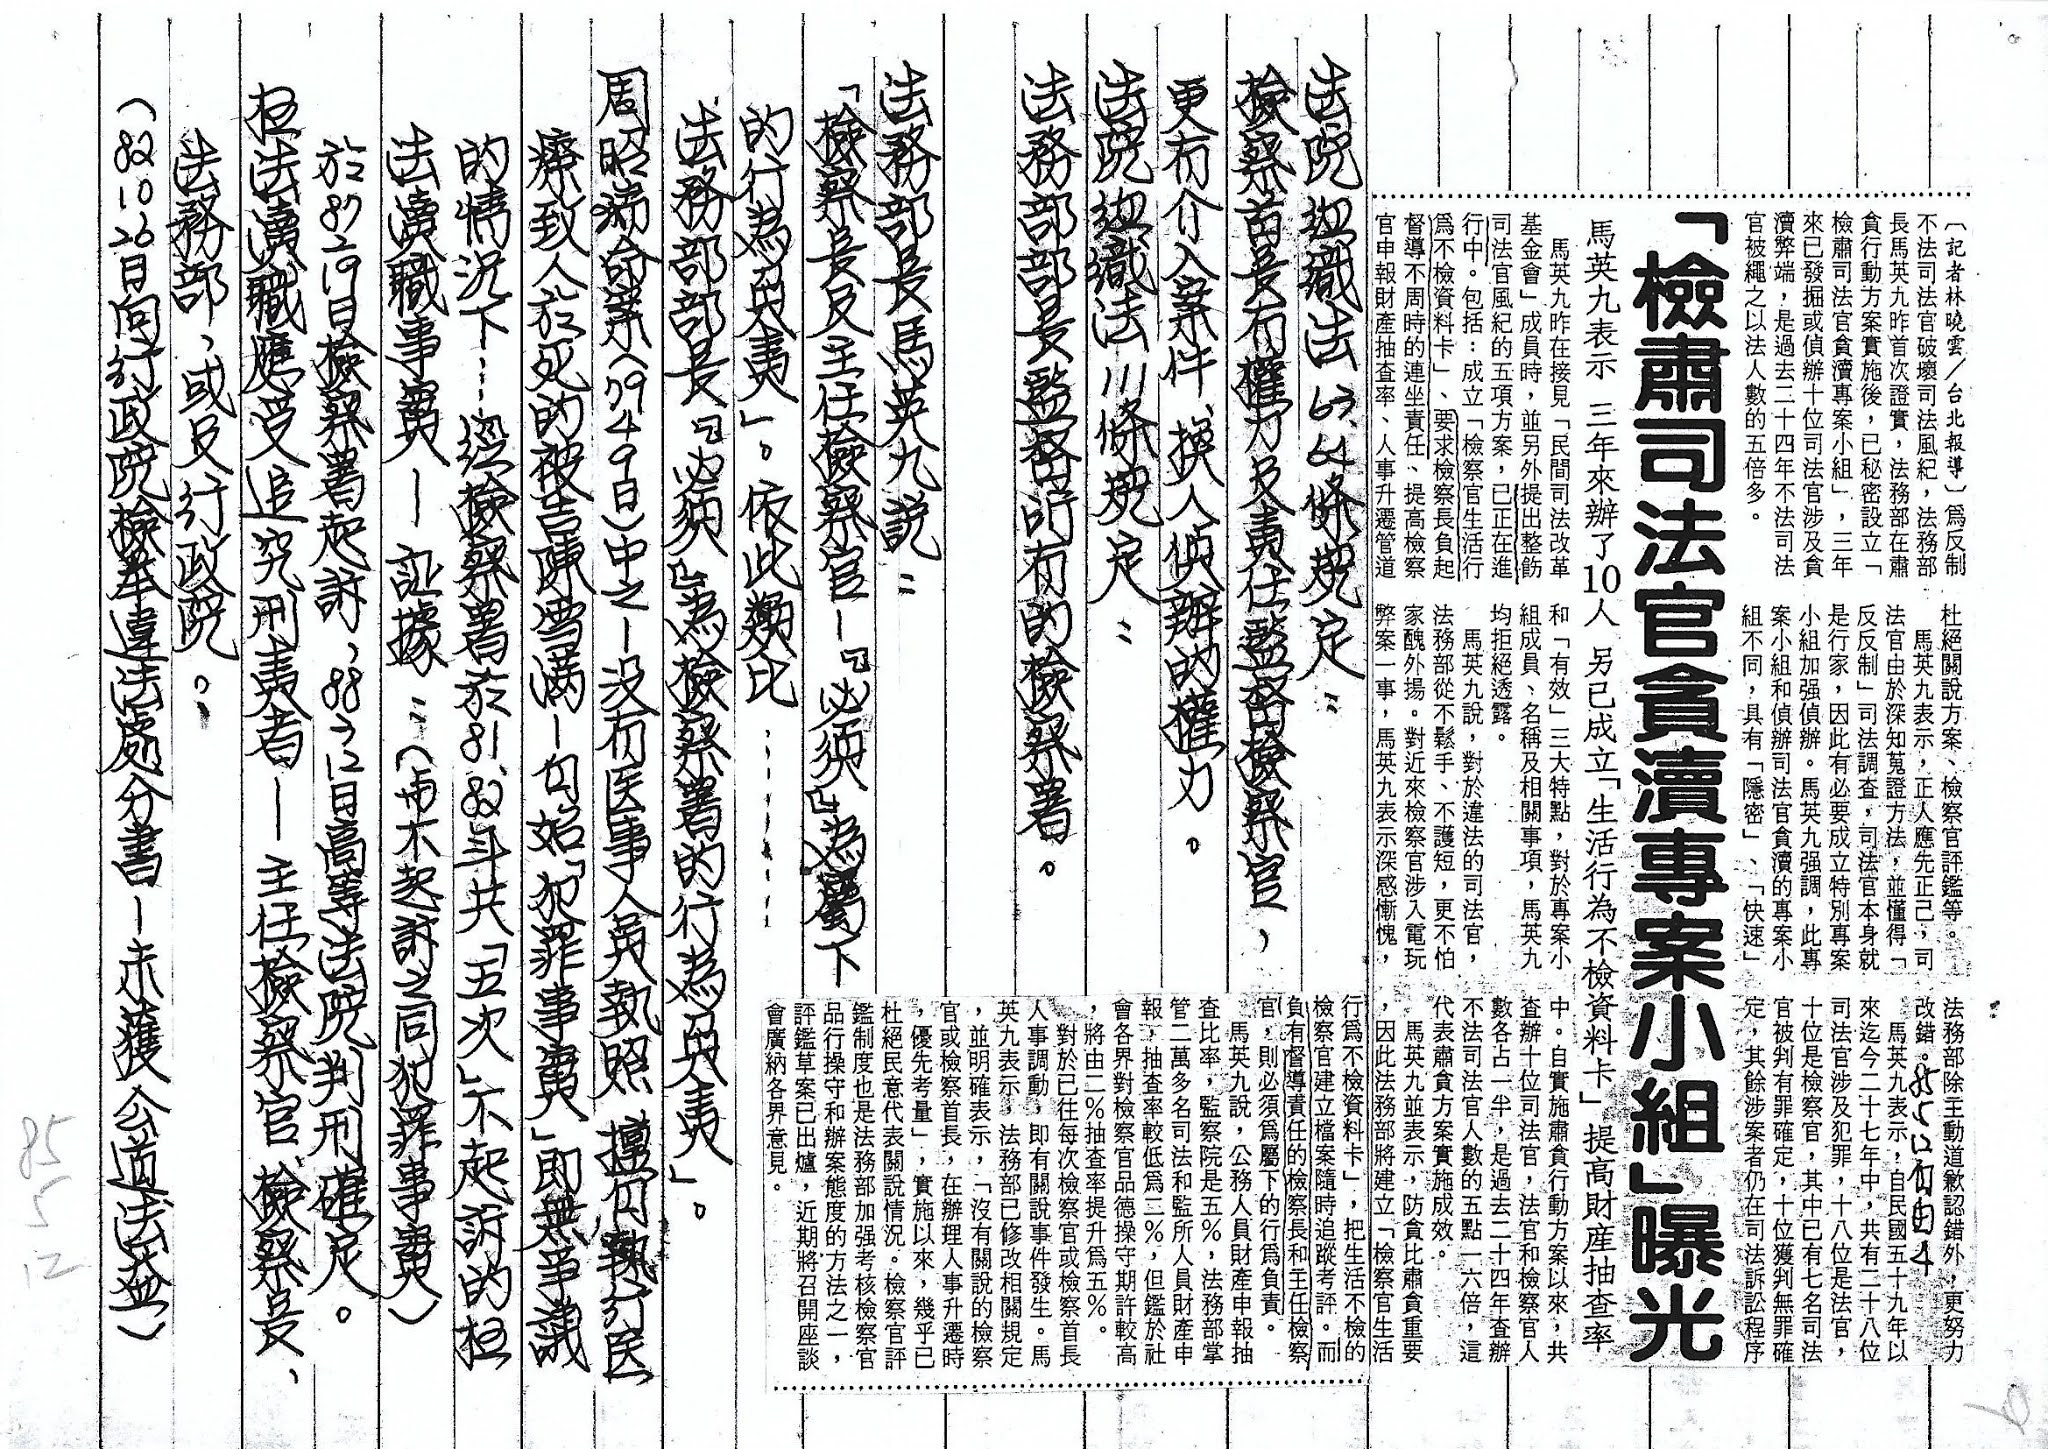 「檢肅司法官貪瀆專案小組」曝光
馬英九表示 三年來辦了10人 另已成立「生活行為不檢資料卡」提高財產抽查率
〔記者林曉雲／台北報導〕爲反制
不法司法官破壞司法風紀，法務部
長馬英九昨首次證實，法務部在肅
貪行動方案實施後，已秘密設立「
檢肅司法官貪瀆專案小組」，三年
來已發掘或偵辦十位司法官涉及貪
瀆弊端，是過去二十四年不法司法
官被繩之以法人數的五倍多。
馬英九昨在接見「民間司法改革
基金會」成員時，並另外提出整飭
司法官風紀的五項方案，已正在進
行中。包括：成立「檢察官生活行
爲不檢資料卡」、要求檢察長負起
督導不周時的連坐責任、提高檢察
官申報財產抽查率、人事升遷管道
杜絕關說方案、檢察官評鑑等。
馬英九表示，正人應先正己，司
法官由於深知蒐證方法，並懂得「
反反制」司法調查，司法官本身就
是行家，因此有必要成立特別專案
小組加强偵辦。馬英九强調，此專
案小組和偵辦司法官貪瀆的專案小
組不同，具有「隱密」、「快速」
和「有效」三大特點，對於專案小
組成員、名稱及相關事項，馬英九
均拒絕透露。
馬英九說，對於違法的司法官，
法務部從不鬆手、不護短，更不怕
家醜外揚。對近來檢察官涉入電玩
弊案一事，馬英九表示深感慚愧，
法務部除主動道歉認錯外，更努力
改錯。
85 5 12 自由 4
馬英九表示，自民國五十九年以
來迄今二十七年中，共有二十八位
司法官涉及犯罪，十八位是法官，
十位是檢察官，其中已有七名司法
官被判有罪確定，十位獲判無罪確
定，其餘涉案者仍在司法訴訟程序
中。自實施肅貪行動方案以來，共
查辦十位司法官，法官和檢察官人
數各占一半，是過去二十四年查辦
不法司法官人數的五點一六倍，這
代表肅貪方案實施成效。
馬英九並表示，防貪比肅貪重要
，因此法務部將建立「檢察官生活
行爲不檢資料卡」，把生活不檢的
檢察官建立檔案隨時追蹤考評。而
負有督導責任的檢察長和主任檢察
官，則必須爲屬下的行爲負責。
馬英九說，公務人員財產申報抽
查比率，監察院是五％，法務部掌
管二萬多名司法和監所人員財產申
報，抽查率較低爲二％，但鑑於社
會各界對檢察官品德操守期許較高
，將由二％抽查率提升爲五％。
對於已往每次檢察官或檢察首長
人事調動，即有關說事件發生。馬
英九表示，法務部已修改相關規定
，並明確表示，「沒有關說的檢察
官或檢察首長，在辦理人事升遷時
，優先考量」，實施以來，幾乎已
杜絕民意代表關說情況。檢察官評
鑑制度也是法務部加强考核檢察官
品行操守和辦案態度的方法之一，
評鑑草案已出爐，近期將召開座談
會廣納各界意見。
法院組織法63、64條規定：
檢察首長有權力及責任監督檢察官，
更有介入案件、換人偵辦的權力。
法院組織法111條規定：
法務部部長監督所有的檢察署。
法務部長馬英九説：
「檢察長及主任檢察官－『必須』為屬下
的行為負責」。依此類比………
法務部部長『必須』為檢察署的行為負責」。
周昭滿命案（79 4 9日）中之－没有医事人員執照 擅自執行医
療致人於死的被告陳雪满－自始「犯罪事實」即無爭議
的情況下…經檢察署於81、82年共「五次」不起訴的枉
法瀆職事實－証據：（而不起訴之同犯罪事實）
於87 2 19日檢察署起訴，88 7 12日高等法院判刑確定。
枉法瀆職應受追究刑責者－主任檢察官、檢察長、
法務部，或及行政院。
（82 10 26日向行政院檢舉違法處分書－未獲公道法益）
85
5
12
6